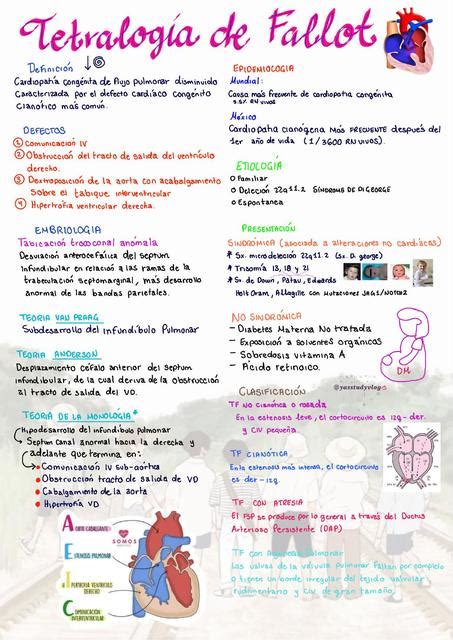 Tetralogía de Fallot
Definición
Cardiopatía congénita de flujo pulmonar disminuido
Caracterizada por el defecto cardíaco congénito
Cianótico más común.
DEFECTOS
① Comunicación IV
② Obstrucción del tracto de salida del ventrículo
derecho.
③ Dextroposición de la aorta con acabalgamiento
Sobre el tabique interventricular
④ Hipertrofia ventricular derecha.
EMBRIOLOGIA
Tabicación troncoconal anómala
Desviación anterocefálica del septum
Infundibular en relación a las ramas de la
trabeculación septomarginal, más desarrollo
anormal de las bandas parietales.
TEORIA VAN PRAAG
Subdesarrollo del infundíbulo Pulmonar
TEORIA ANDERSON
Desplazamiento céfalo anterior del septum
infundibular, de la cual deriva de la obstrucción
al tracto de salida del VD.
TEORÍA DE LA MONOLOGIA*
Hipodesarrollo del infundíbulo pulmonar
Septum canal anormal hacia la derecha y
adelante que termina en:
• Comunicación IV sub-aórtica
• Obstrucción tracto de salida de VD
• Cabalgamiento de la aorta
• Hipertrofia VD
A ORTA CABALGANTE
E STENOSIS PULMONAR
HIPERTROFIA VENTRICULO DERECHO
I
C COMUNICACIÓN INTERVENTRICULAR
SOMOS
EPIDEMIOLOGIA
Mundial:
Causa más frecuente de cardiopatía congénita
RN vivos
México
Cardiopatía cianógena más FRECUENTE después del
1er año de vida (1/3600 RN vivos).
ETIOLOGÍA
o Familiar
o Deleción 22q11.2 SÍNDROME DE DI GEORGE
o Espontanea
PRESENTACIÓN
SINDRÓMICA (asociada a alteraciones no cardíacas)
* Sx. microdeleción 22q11.2 (Sx. D. george)
* Trisomía 13, 18 y 21
* Sx. de Down, Patau, Edwards
Holt Oram, Allagille con mutaciones JAG1/NOTCH2
NO SINDRÓMICA
- Diabetes Materna No tratada
- Exposición a solventes orgánicos
- Sobredosis vitamina A
- Ácido retinoico.
DM
@yasstudyvlog
CLASIFICACIÓN
TF NO Cianótica o rosada
En la estenosis leve, el cortocircuito es izq-der.
y CIV pequeña.
TF CIANÓTICA
En la estenosis más intensa, el cortocircuito
es der-izq.
TF CON ATRESIA
El FSP se produce por lo general a través del Ductus
Arterioso Persistente (DAP)
TF con Pulmonar
Las valvas de la válvula pulmonar faltan por completo
o tienen un borde irregular del tejido valvular
rudimentario y CIV de gran tamaño.